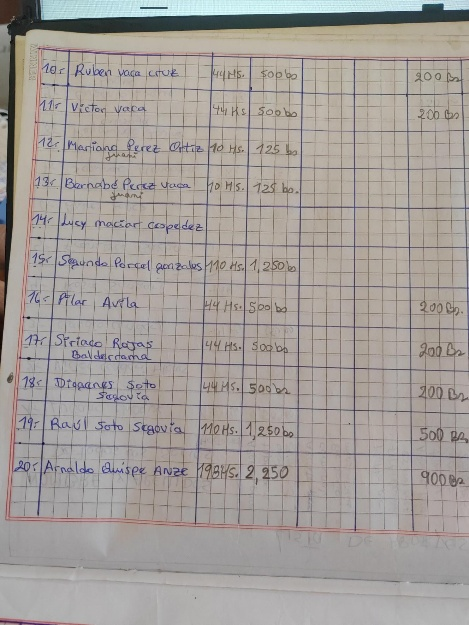 10: Ruben vaca cruz 44 Hs. 500 bs 200 Bs
11: Victor vaca 44 Hs 500 bs 200 Bs.
12: Mariano Perez Ortiz 10 Hs. 125 bs
Juani
13: Bernabé Perez vaca 10 Hs. 125 bs.
Juani
14: Lucy maciar cespedez
15: Segundo Porcel gonzales 110 Hs. 1,250 bs
16: Pilar Avila 44 Hs. 500 bs 200 Bs.
17: Siriaco Rojas 44 Hs. 500 bs 200 Bs
Balderrama
18: Soto 44 Hs. 500 bs 200 Bs
Segovia
19: Raúl Soto Segovia 110 Hs. 1,250 bs 500 Bs
20: Arnaldo Quispe Anze 198 Hs. 2,250 900 Bs